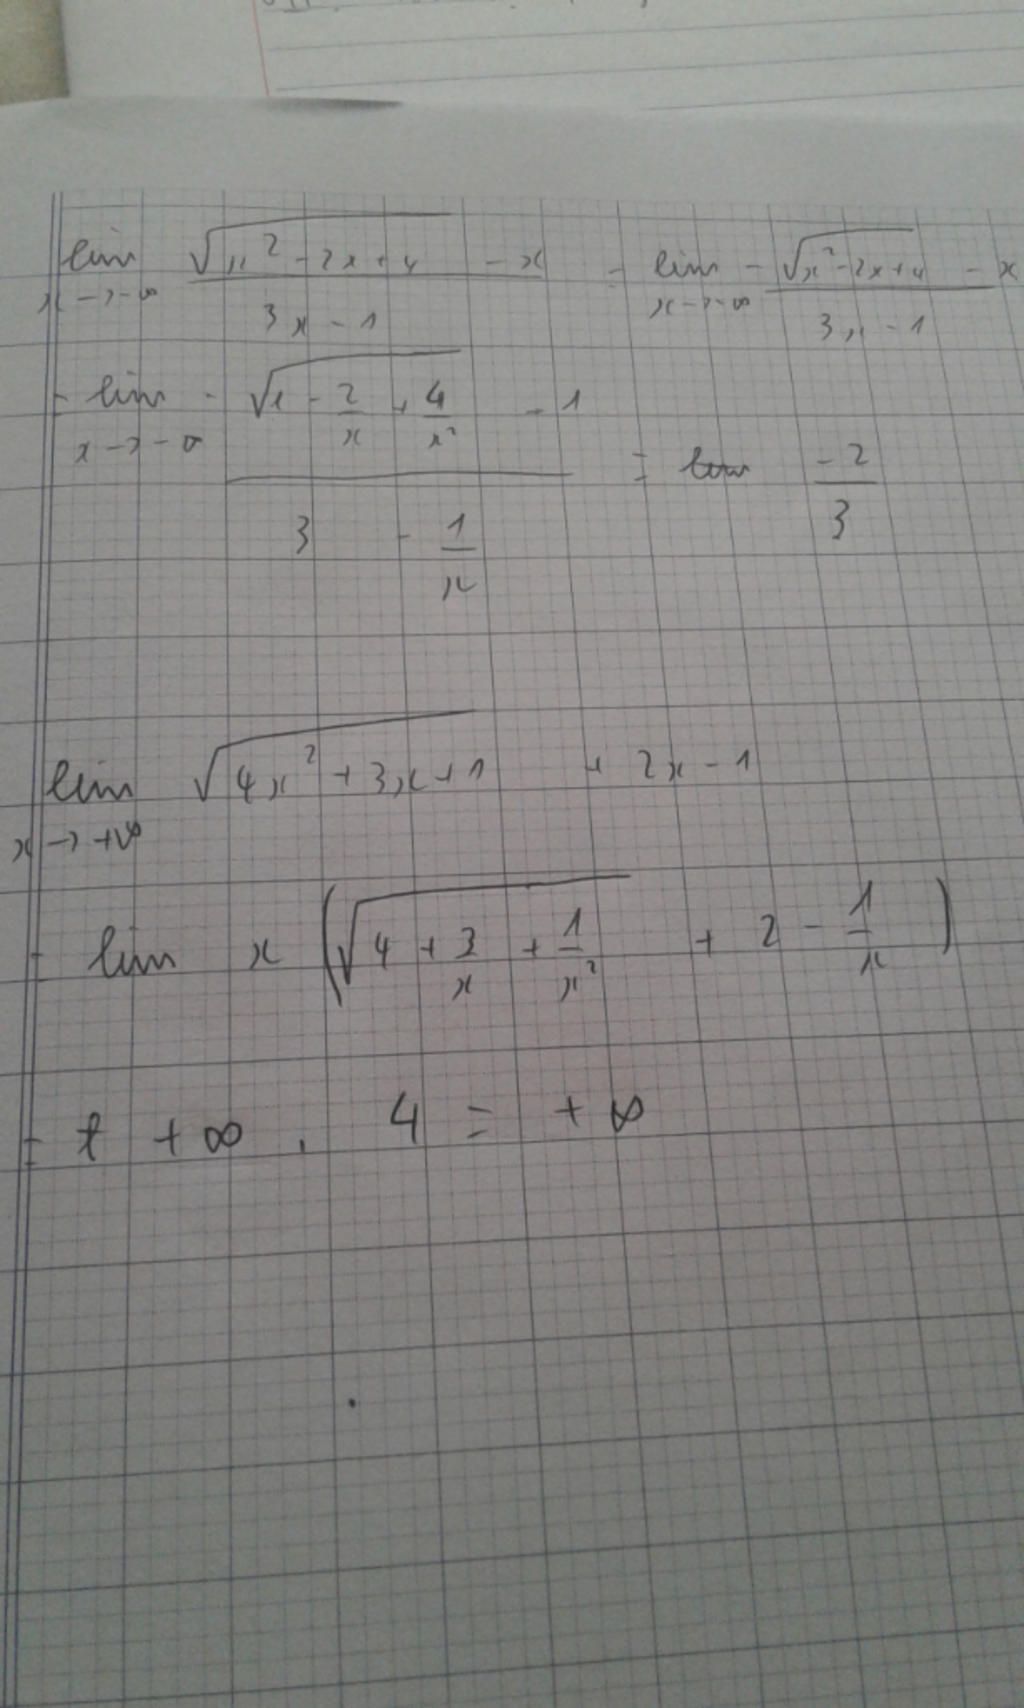 lim x→-∞ (√(x² - 2x + 4) - x) / (3x - 1) = lim x→-∞ (-√(x² - 2x + 4) - x) / (3x - 1)
= lim x→-∞ (-√(1 - 2/x + 4/x²) - 1) / (3 - 1/x) = lim -2/3
lim x→+∞ √(4x² + 3x + 1) + 2x - 1
= lim x (√(4 + 3/x + 1/x²) + 2 - 1/x)
= +∞ . 4 = +∞